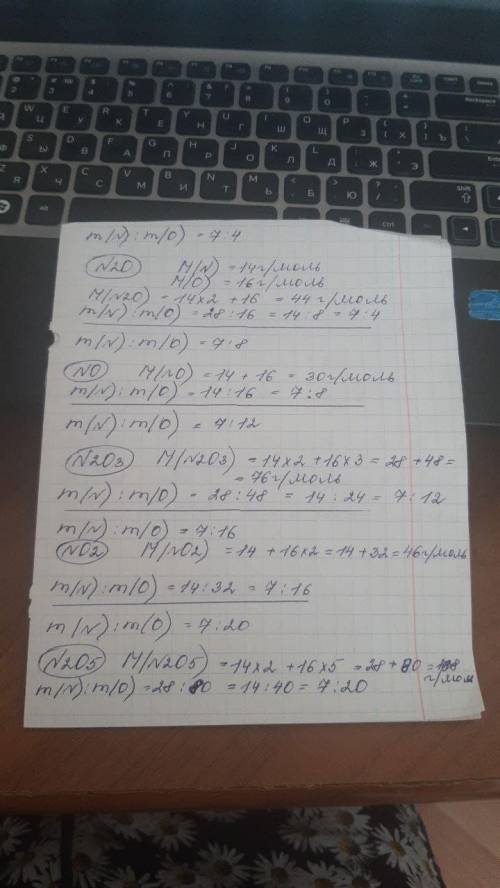 m(N):m(O) = 7:4
N2O M(N) = 14 г/моль
M(O) = 16 г/моль
M(N2O) = 14x2 + 16 = 44 г/моль
m(N):m(O) = 28:16 = 14:8 = 7:4
m(N):m(O) = 7:8
NO M(NO) = 14 + 16 = 30 г/моль
m(N):m(O) = 14:16 = 7:8
m(N):m(O) = 7:12
N2O3 M(N2O3) = 14x2 + 16x3 = 28 + 48 =
= 76 г/моль
m(N):m(O) = 28:48 = 14:24 = 7:12
m(N):m(O) = 7:16
NO2 M(NO2) = 14 + 16x2 = 14 + 32 = 46 г/моль
m(N):m(O) = 14:32 = 7:16
m(N):m(O) = 7:20
N2O5 M(N2O5) = 14x2 + 16x5 = 28 + 80 = 108
г/моль
m(N):m(O) = 28:80 = 14:40 = 7:20